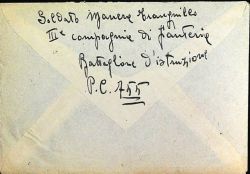 Soldato Manera Tranquillo
IIIª compagnia di fanteria
Battaglione d'istruzione
P.C. A55